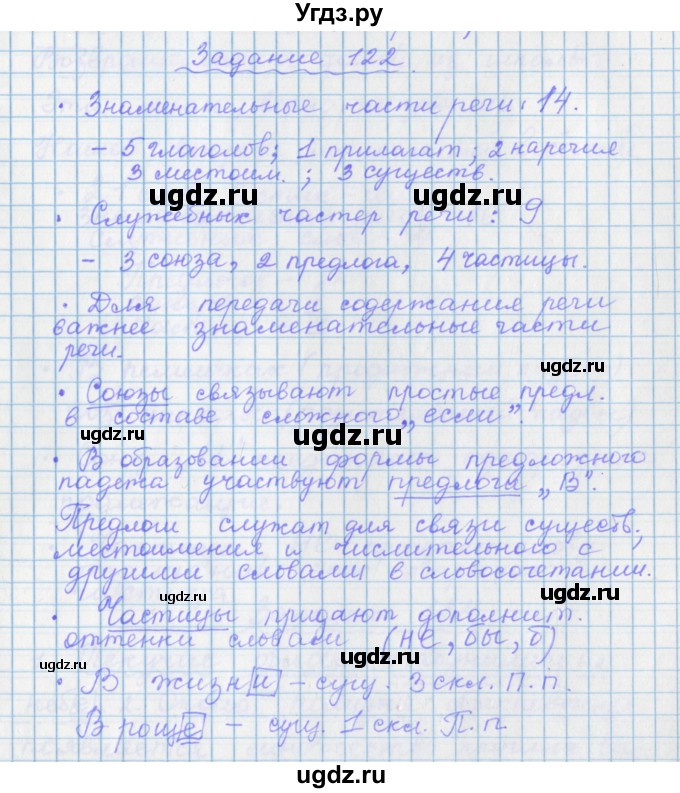 Угдз.ру
Задание 122
• Знаменательные части речи: 14.
– 5 глаголов; 1 прилагат; 2 наречия
3 местоим. ; 3 существ.
ugdz.ru ugdz.ru
• Служебных частер речи: 9
– 3 союза, 2 предлога, 4 частицы.
ugdz.ru
• Для передачи содержания речи
важнее знаменательные части
речи.
ugdz.ru
• Союзы связывают простые предл.
в составе сложного „если".
ugdz.ru ugdz.ru
• В образовании формы предложного
падежа участвуют предлоги „В".
Предлоги служат для связи существ.,
местоимения и числительного с
другими словами в словосочетании.
ugdz.ru
• Частицы придают дополнит.
оттенки словами (не, бы, б)
ugdz.ru ugdz.ru
• В жизни – сущ. 3 скл. П. п.
В роще – сущ. 1 скл. П. п
ugdz.ru
ugdz.ru